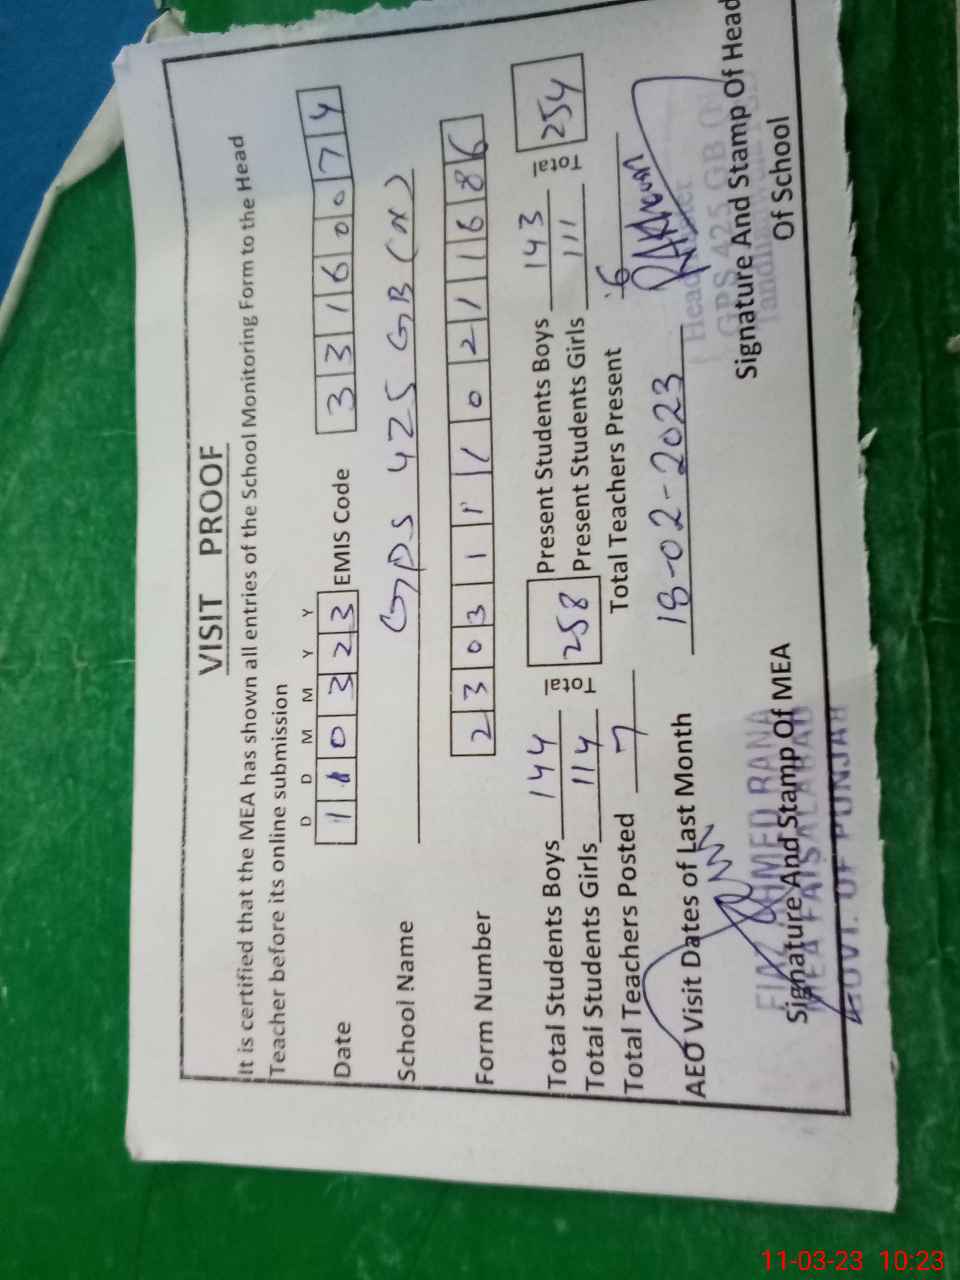 VISIT PROOF
It is certified that the MEA has shown all entries of the School Monitoring Form to the Head
Teacher before its online submission
D D M M Y Y
Date 110323 EMIS Code 33160074
School Name GPS 425 GB (N)
Form Number 23031110211686
Total Students Boys 144 Total 258 Present Students Boys 143 Total 254
Total Students Girls 114 Present Students Girls 111
Total Teachers Posted 7 Total Teachers Present 6
AEO Visit Dates of Last Month 18-02-2023
AHMED RANA
MEA FAISALABAD
GOVT. OF PUNJAB
Signature And Stamp Of MEA
GPS 425 GB
Signature And Stamp Of Head
Of School
11-03-23 10:23